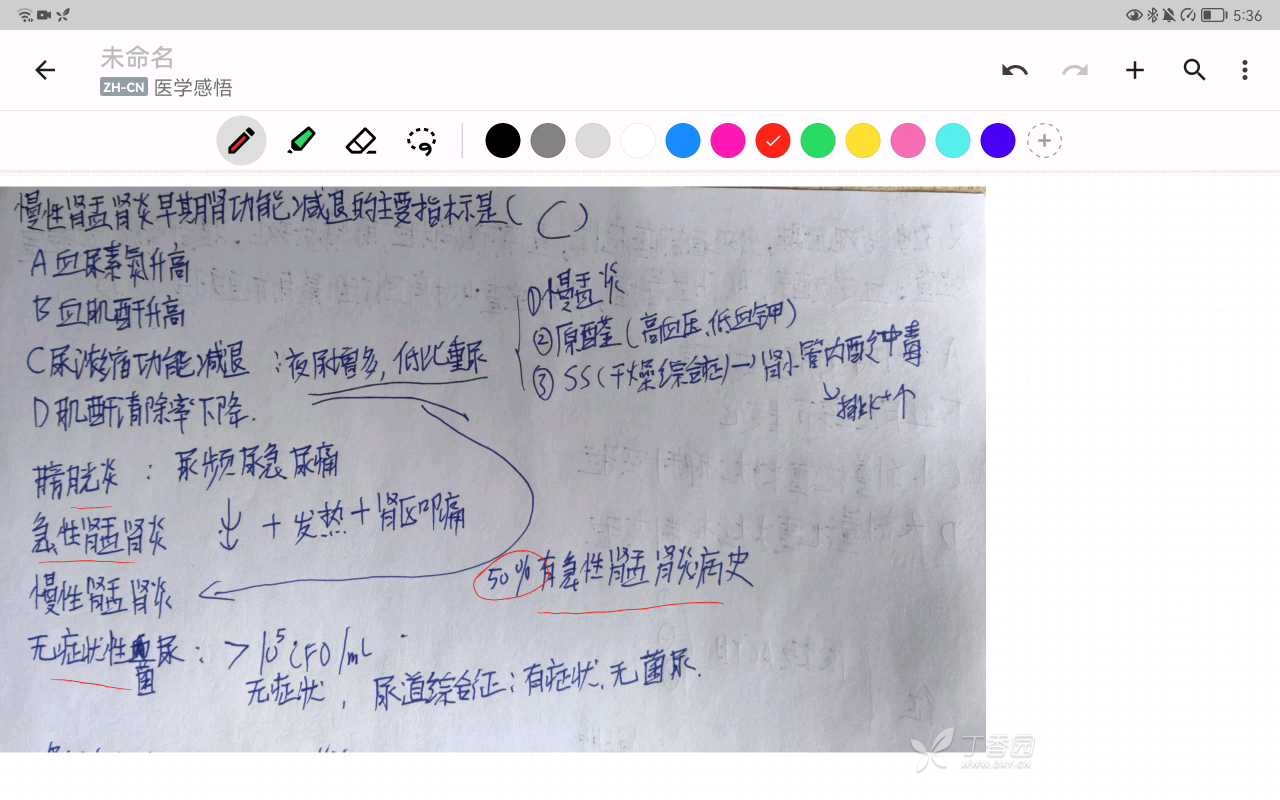 5:36
未命名
ZH-CN 医学感悟
慢性肾盂肾炎早期肾功能减退的主要指标是( C )
A 血尿素氮升高
B 血肌酐升高
C 尿浓缩功能减退 :夜尿增多,低比重尿
D 肌酐清除率下降.
①慢盂炎
②原醛(高血压、低血钾)
③ SS(干燥综合征)→肾小管内酸中毒
↘排K+↑
膀胱炎 : 尿频尿急尿痛
急性肾盂肾炎 ↓ +发热+肾区叩痛
慢性肾盂肾炎
50%有急性肾盂肾炎病史
无症状性菌尿: >10⁵CFU/mL
无症状, 尿道综合征:有症状、无菌尿.
丁香园
WWW.DXY.CN